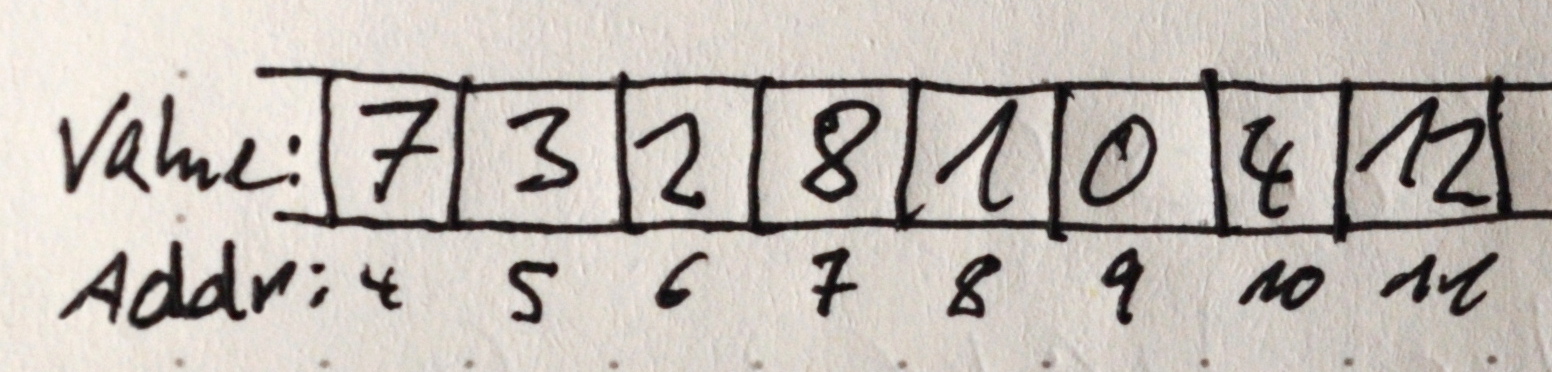 Value: 7 3 2 8 1 0 4 12
Addr: 4 5 6 7 8 9 10 11